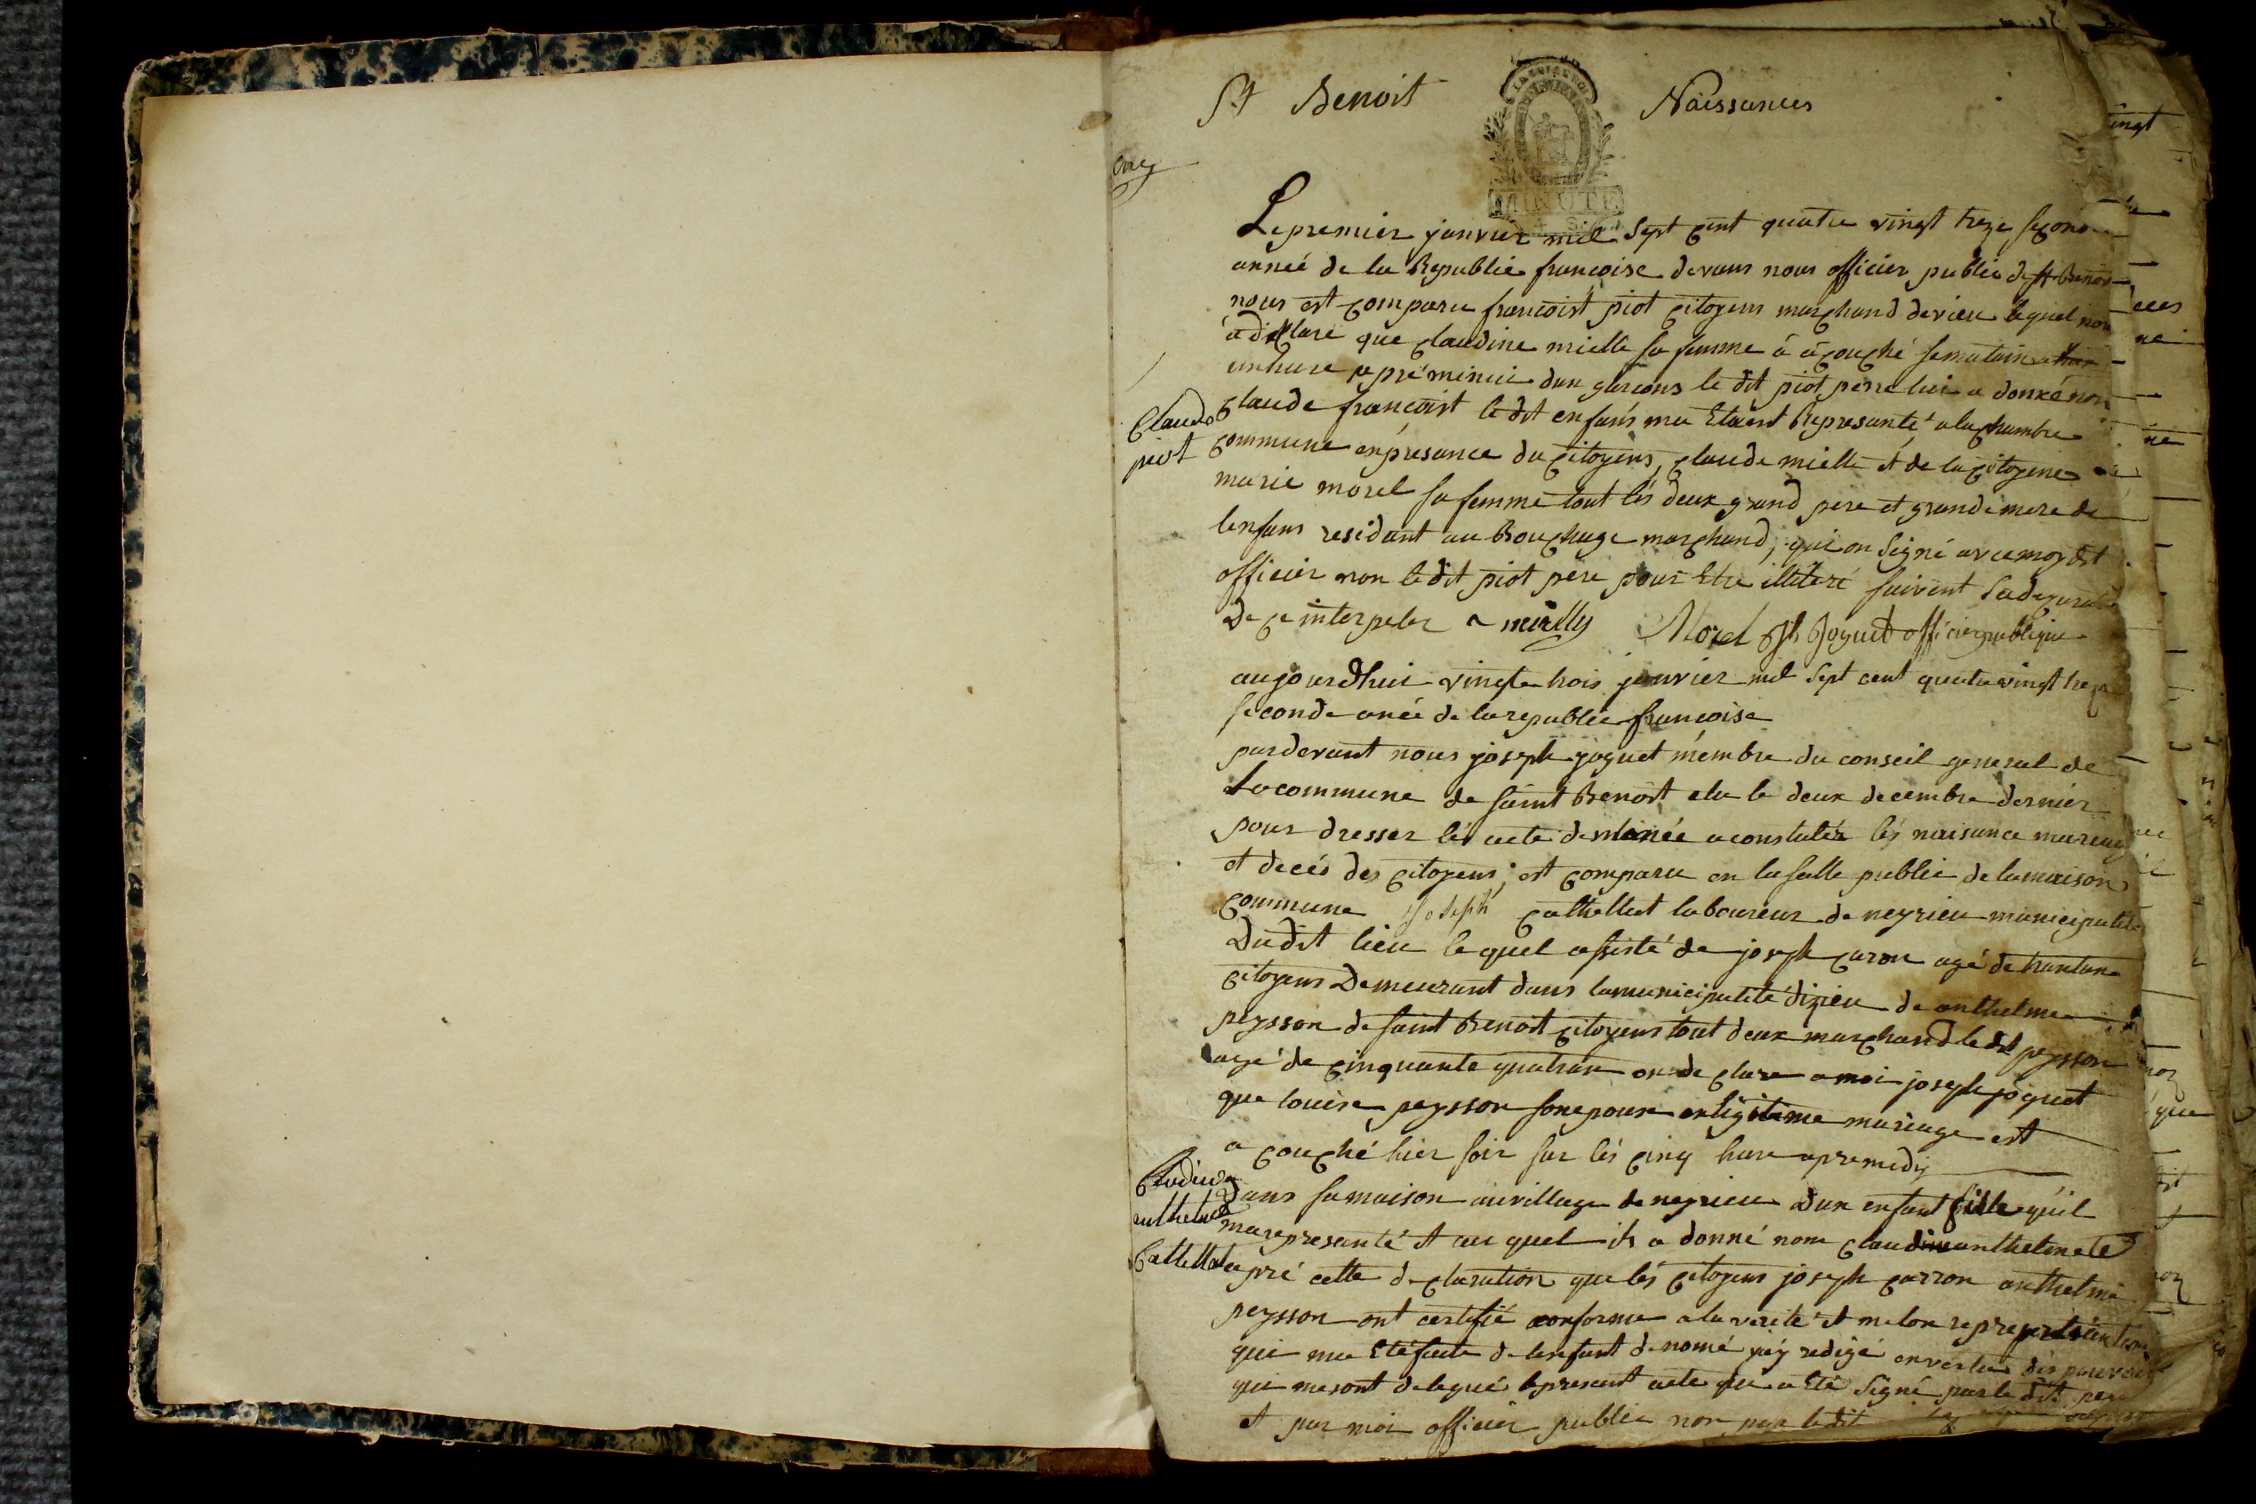 St Benoit
Naissances
MINUTE
Le premier janvier mil sept cent quatre vingt treze segond
année de la Republic francoise devans nous officier public de st Benoit
nous est comparu francoist piot citoyens marchand devieu lequel nou
a déclare que claudine mielle sa femme à acouché
dun garcons le dit piot perre lui a donné nom
Claude piot
claude francoist le dit enfans ma Etaent Represanté a la chambre
commune en présance du citoyens, claude mielle et de la citoyene
marie morel sa femme tout lés deux grand pere et grande mere de
lenfans residant au Bouchage marchand, qui on signé avec moy dit
officier non le dit piot pere pour Etre illiteré suivent
de ce interpeler
Morel Jh Joguet officier publique
aujourdhui vingte trois janvier mil sept cent quatre vingt treze
seconde anée de la republic francoise
par devant nous joseph joguet membre du conseil general de
La commune de saint Benoit elu le deux decembre dernier
pour dresser lés acte a constater lés naisance mareag
et decés des citoyens; est comparu en la salle public de la maison
commune joseph cathellect laboureur de neyrieu municipalité
Dudit lieu le quel assisté de joseph caron agé de trantan
citoyens Demeurant dans la municipalité dizieu de anthelme
peysson de saint Benoit citoyens tout deux marchand le dit peysson
agé de cinquante quatran on declare a moi joseph joguet
que louise peysson son epouse en ligitime mariage est
a couché hier soir sur lés cinq hure apremedy
dans sa maison au village de neyrieu dun enfant fille quil
ma represanté et au quel ils a donné nom claudine anthelmete
apré cette declaration que lés citoyens joseph carron anthelme
peysson ont certifié conforme a la verité et
qui ma Eté faite de lenfant denomé jay redigé en vertu des pouvoir
qui me sont delegué le present acte que a Eté signé par le dit
et par moi officier public non